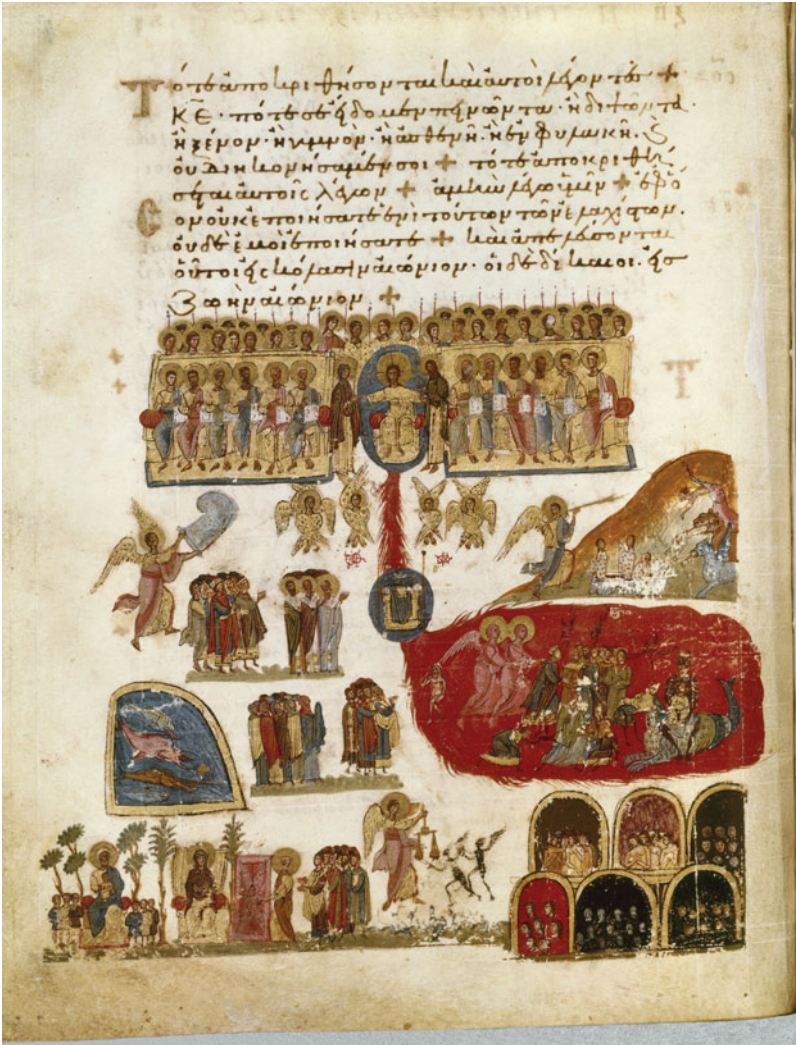 Τότε ἀποκριθήσονται καὶ αὐτοὶ λέγοντες +
ΚΕ · πότε σὲ εἴδομεν πεινῶντα · ἢ διψῶντα ·
ἢ ξένον · ἢ γυμνὸν · ἢ ἀσθενῆ · ἢ ἐν φυλακῆ · καὶ
οὐ διηκονήσαμέν σοι + τότε ἀποκριθή
σεται αὐτοῖς λέγων + ἀμὴν λέγω ὑμῖν + ἐφ ὅ
σον οὐκ ἐποιήσατε ἑνὶ τούτων τῶν ἐλαχίστων ·
οὐδὲ ἐμοὶ ἐποιήσατε + καὶ ἀπελεύσονται
οὗτοι εἰς κόλασιν αἰώνιον · οἱ δὲ δίκαιοι · εἰς
ζωὴν αἰώνιον +